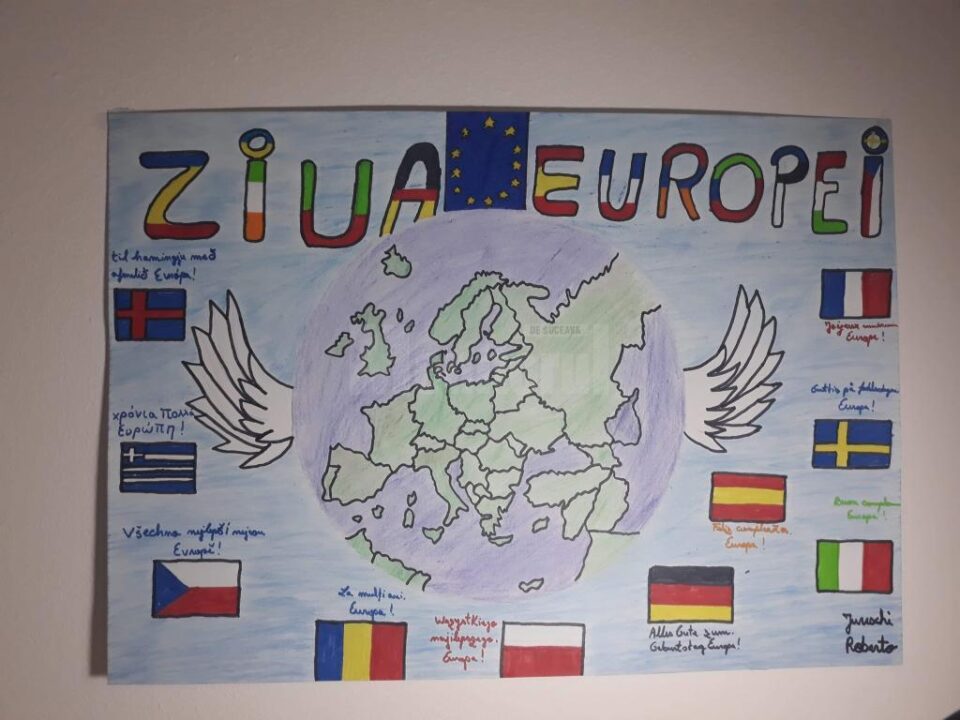 ZIUA EUROPEI
til hamingju með
afmælið Európa!
χρόνια Πολλά
Ευρώπη!
Všechno nejlepší
Evropě!
La mulți ani,
Europa!
Wszystkiego
najlepszego,
Europa!
Alles Gute zum
Geburtstag Europa!
Feliz cumpleaños
Europa!
Joyeux
Europe!
Grattis på födelsedagen
Europa!
Buon
Europa!
Juruschi
Roberto
DE SUCEAVA